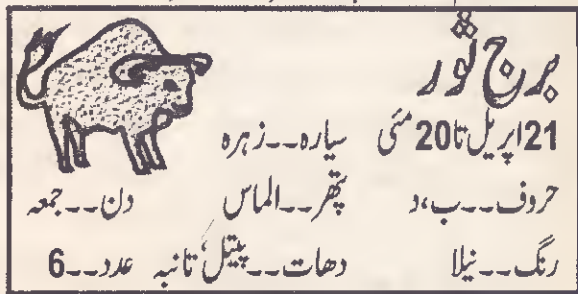 برج ثور
21اپریل تا20مئی سیارہ--زہرہ
حروف--ب،د پتھر--الماس دن--جمعہ
رنگ--نیلا دھات--پیتل،تانبہ عدد--6